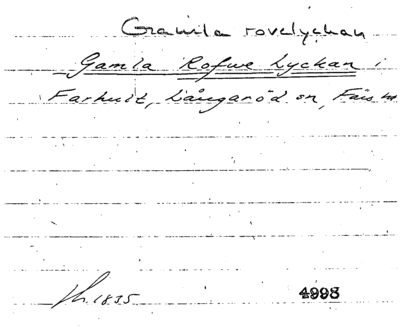 Gamla rovelyckan
Gamla Rofwe Lyckan i
Farhult, Långaröd sn, Färs hd
Lh. 1835 4998